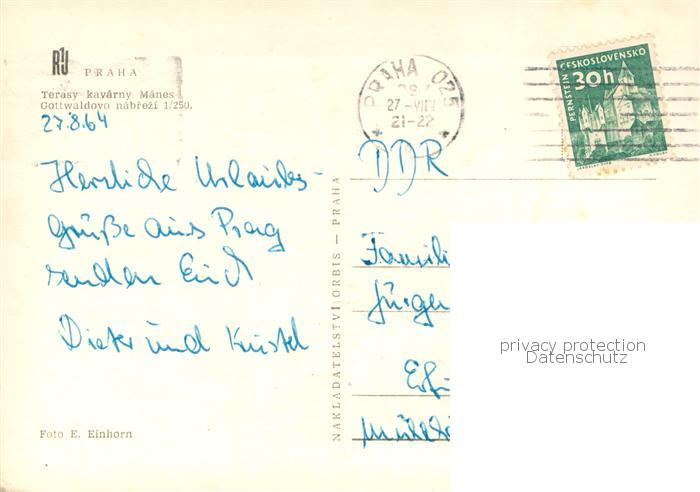 PRAHA
Terasy kavárny Mánes
Gottwaldovo nábřeží 1/250.
27.8.64
Herzliche Urlaubs-
grüße aus Prag
senden Euch
Dieter und Kristel
Foto E. Einhorn
NAKLADATELSTVÍ ORBIS — PRAHA
PRAHA 025
27-VIII
21-22
ČESKOSLOVENSKO
30h
PERNŠTEJN
DDR
Famili
Jürgen
privacy protection
Datenschutz